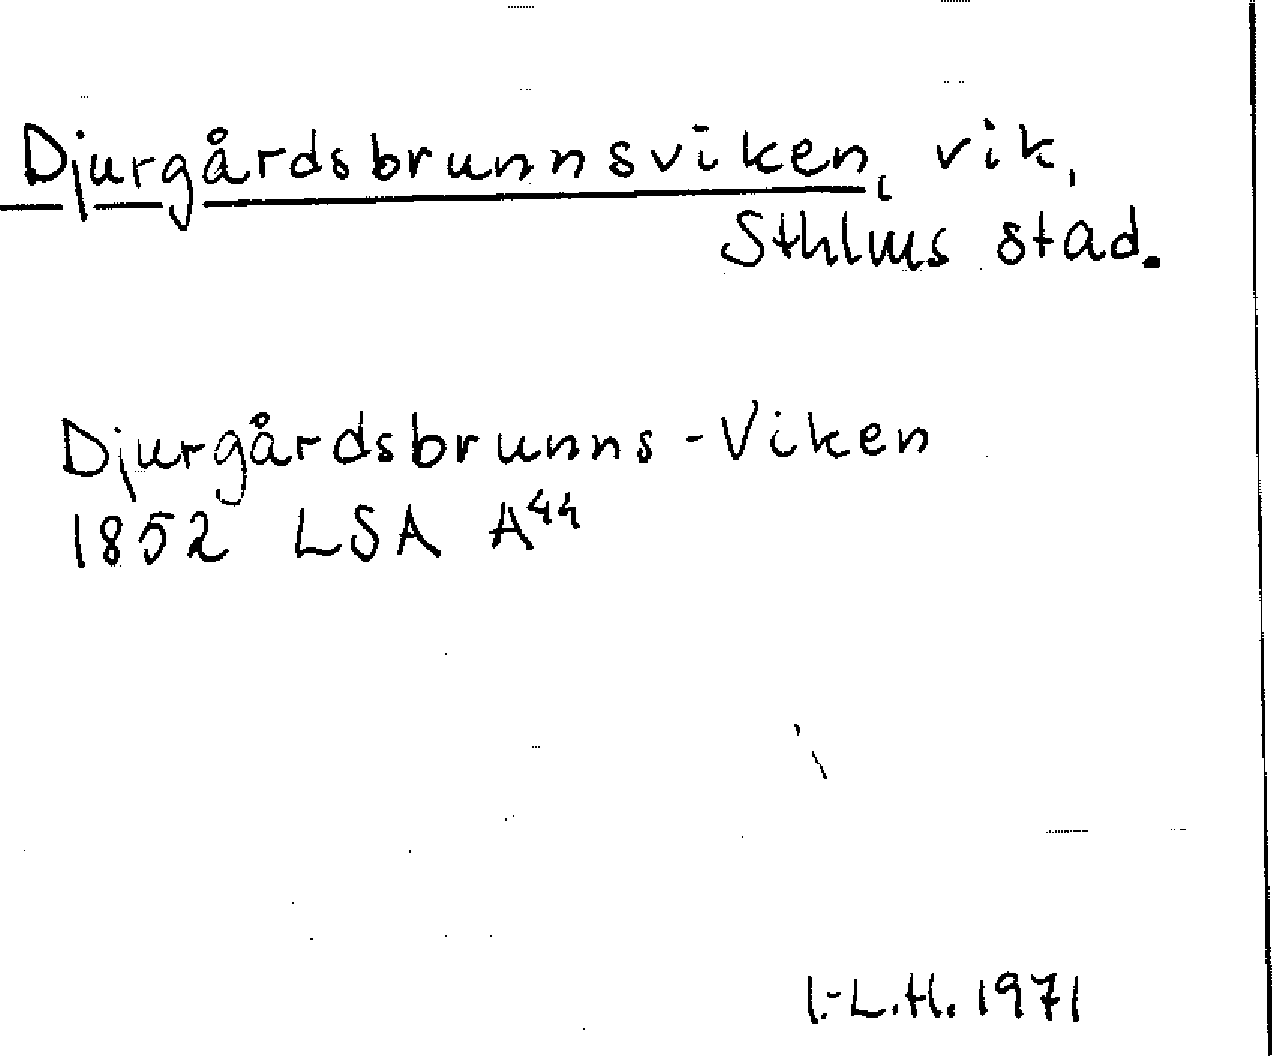 Djurgårdsbrunnsviken, vik,
Sthlms stad.
Djurgårdsbrunns-Viken
1852 LSA A44
I.-L.H. 1971